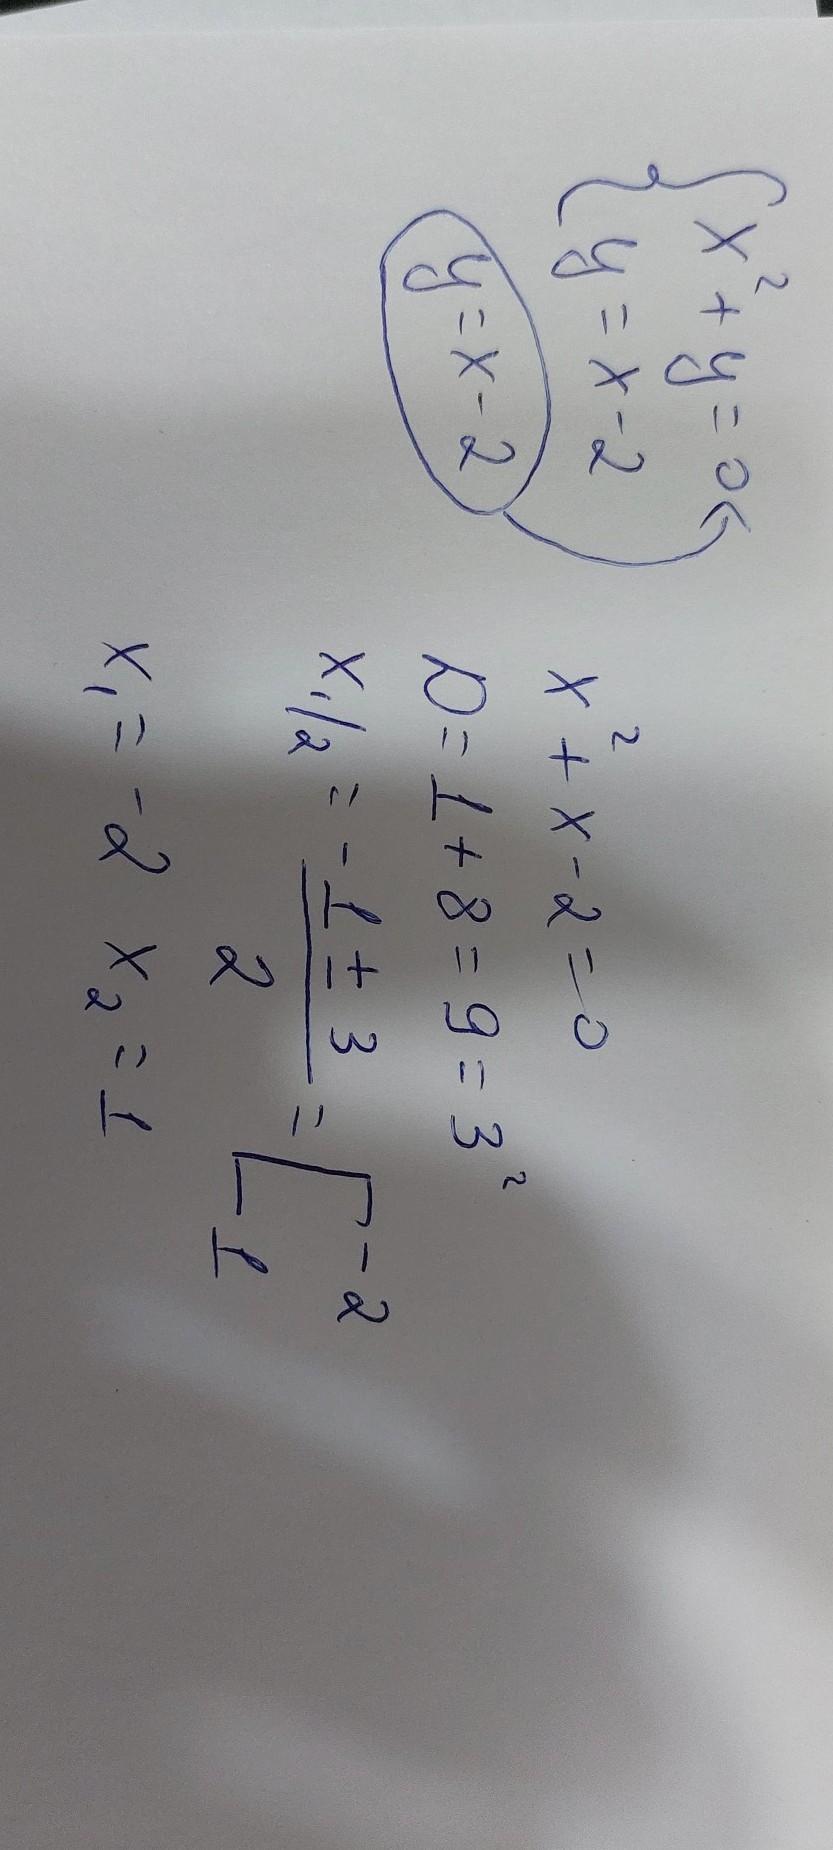 { x² + y = 0
y = x - 2
y = x - 2
x² + x - 2 = 0
D = 1 + 8 = 9 = 3²
x₁/₂ = -1 ± 3 / 2 = [ -2
1
x₁ = -2 x₂ = 1